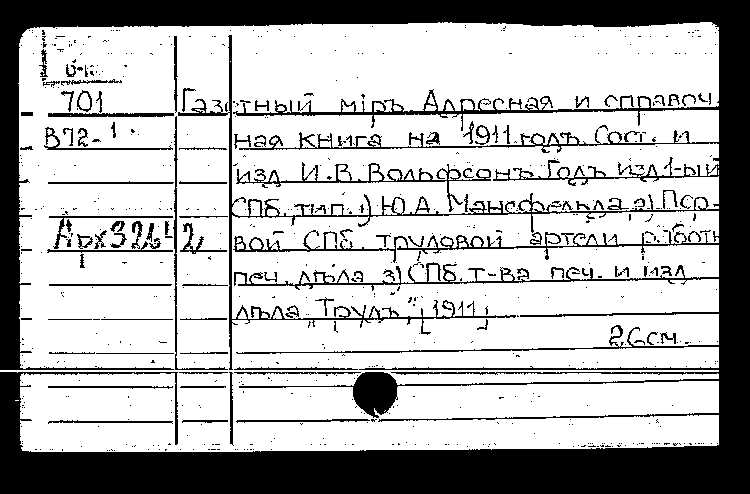 701
В72-1
Газетный мiръ. Адресная и справоч-
ная книга на 1911 годъ. Сост. и
изд. И.В. Вольфсонъ. Годъ изд. 1-ый
СПб., тип. 1) Ю.А. Мансфельда, 2) Пер-
вой СПб. трудовой артели работн
печ. дѣла, 3) СПб. т-ва печ. и изд.
дѣла „Трудъ", [1911]
26 см.